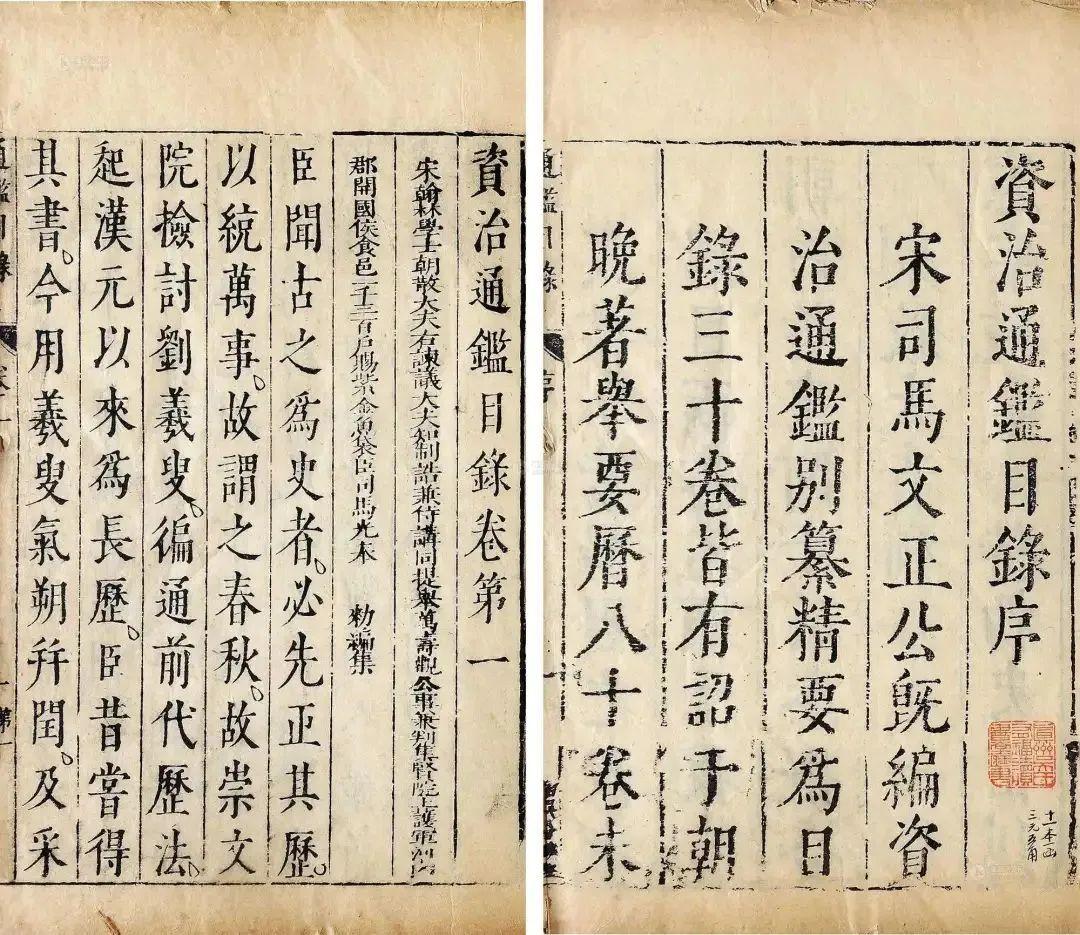 資治通鑑目錄序
宋司馬文正公旣編資
治通鑑別纂精要爲目
錄三十卷皆有詔于朝
晚著舉要曆八十卷未
三元五角
通鑑目錄 序
資治通鑑目錄卷第一
宋翰林學士朝散大夫右諫議大夫知制誥兼侍講同提舉萬壽觀公事兼判集賢院上護軍河內
郡開國侯食邑一千三百戶賜紫金魚袋臣司馬光奉 勅編集
臣聞古之爲史者。必先正其歷。
以統萬事。故謂之春秋。故崇文
院撿討劉羲叟。徧通前代歷法。
起漢元以來爲長歷。臣昔嘗得
其書。今用羲叟氣朔幷閏。及采
通鑑目錄